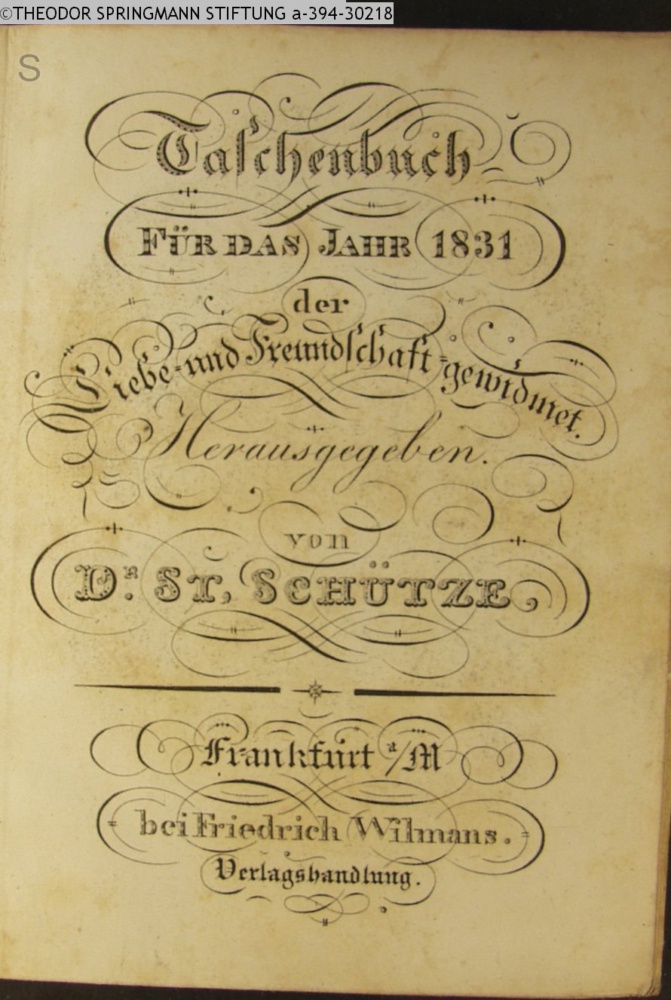 ©THEODOR SPRINGMANN STIFTUNG a-394-30218
S
Taschenbuch
FÜR DAS JAHR 1831
der
Liebe- und Freundschaft-gewidmet.
Herausgegeben.
von
DR. ST. SCHÜTZE,
Frankfurt a/M
bei Friedrich Wilmans.
Verlagshandlung.